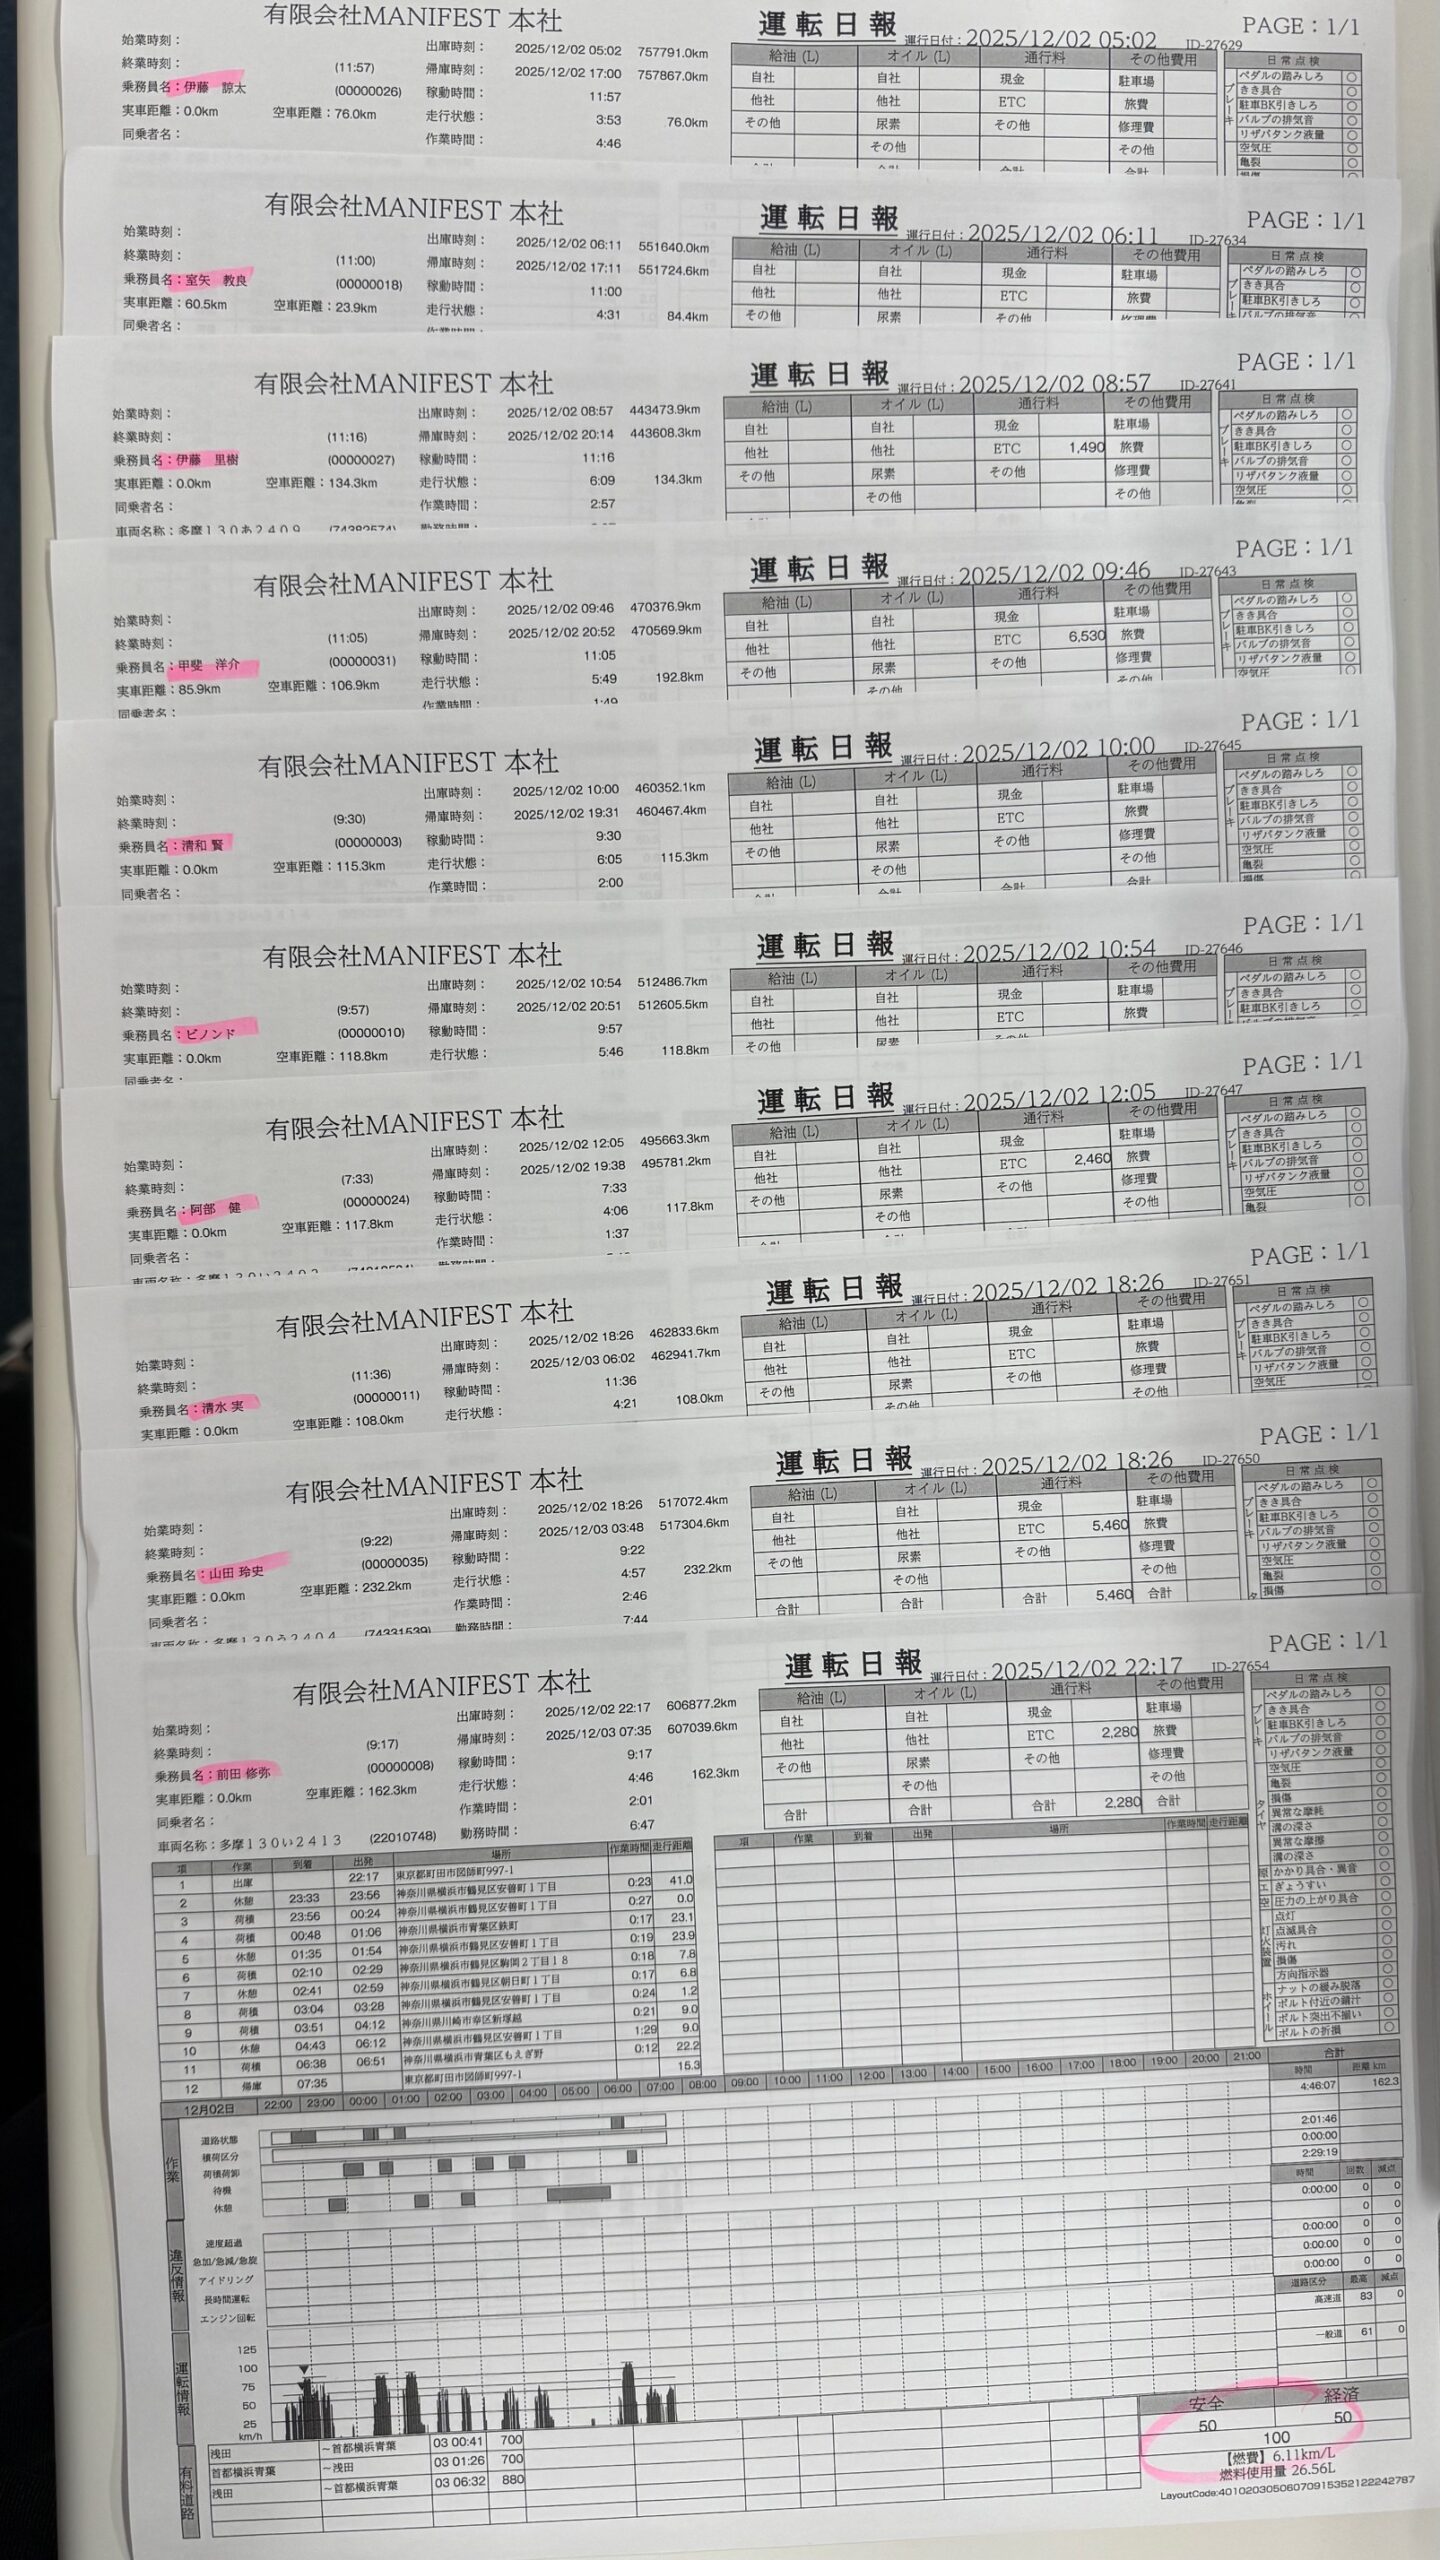 有限会社MANIFEST 本社
運転日報 運行日付：2025/12/02 05:02 ID-27629 PAGE：1/1
始業時刻：
終業時刻： (11:57)
乗務員名：伊藤 諒太 (00000026)
実車距離：0.0km 空車距離：76.0km
同乗者名：
出庫時刻： 2025/12/02 05:02 757791.0km
帰庫時刻： 2025/12/02 17:00 757867.0km
稼動時間： 11:57
走行状態： 3:53 76.0km
作業時間： 4:46
給油 (L) オイル (L) 通行料 その他費用
自社 自社 現金 駐車場
他社 他社 ETC 旅費
その他 尿素 その他 修理費
その他 その他
日常点検
ペダルの踏みしろ ○
きき具合 ○
駐車BK引きしろ ○
バルブの排気音 ○
リザバタンク液量 ○
空気圧 ○
亀裂 ○
有限会社MANIFEST 本社
運転日報 運行日付：2025/12/02 06:11 ID-27634 PAGE：1/1
始業時刻：
終業時刻： (11:00)
乗務員名：室矢 教良 (00000018)
実車距離：60.5km 空車距離：23.9km
同乗者名：
出庫時刻： 2025/12/02 06:11 551640.0km
帰庫時刻： 2025/12/02 17:11 551724.6km
稼動時間： 11:00
走行状態： 4:31 84.4km
給油 (L) オイル (L) 通行料 その他費用
自社 自社 現金 駐車場
他社 他社 ETC 旅費
その他 尿素 その他
日常点検
ペダルの踏みしろ ○
きき具合 ○
駐車BK引きしろ ○
バルブの排気音 ○
有限会社MANIFEST 本社
運転日報 運行日付：2025/12/02 08:57 ID-27641 PAGE：1/1
始業時刻：
終業時刻： (11:16)
乗務員名：伊藤 里樹 (00000027)
実車距離：0.0km 空車距離：134.3km
同乗者名：
車両名称：多摩１３０あ２４０９ (74382574)
出庫時刻： 2025/12/02 08:57 443473.9km
帰庫時刻： 2025/12/02 20:14 443608.3km
稼動時間： 11:16
走行状態： 6:09 134.3km
作業時間： 2:57
給油 (L) オイル (L) 通行料 その他費用
自社 自社 現金 駐車場
他社 他社 ETC 1,490 旅費
その他 尿素 その他 修理費
その他 その他
日常点検
ペダルの踏みしろ ○
きき具合 ○
駐車BK引きしろ ○
バルブの排気音 ○
リザバタンク液量 ○
空気圧 ○
有限会社MANIFEST 本社
運転日報 運行日付：2025/12/02 09:46 ID-27643 PAGE：1/1
始業時刻：
終業時刻： (11:05)
乗務員名：甲斐 洋介 (00000031)
実車距離：85.9km 空車距離：106.9km
同乗者名：
出庫時刻： 2025/12/02 09:46 470376.9km
帰庫時刻： 2025/12/02 20:52 470569.9km
稼動時間： 11:05
走行状態： 5:49 192.8km
作業時間： 1:49
給油 (L) オイル (L) 通行料 その他費用
自社 自社 現金 駐車場
他社 他社 ETC 6,530 旅費
その他 尿素 その他 修理費
その他 その他
日常点検
ペダルの踏みしろ ○
きき具合 ○
駐車BK引きしろ ○
バルブの排気音 ○
リザバタンク液量 ○
空気圧 ○
有限会社MANIFEST 本社
運転日報 運行日付：2025/12/02 10:00 ID-27645 PAGE：1/1
始業時刻：
終業時刻： (9:30)
乗務員名：清和 賢 (00000003)
実車距離：0.0km 空車距離：115.3km
同乗者名：
出庫時刻： 2025/12/02 10:00 460352.1km
帰庫時刻： 2025/12/02 19:31 460467.4km
稼動時間： 9:30
走行状態： 6:05 115.3km
作業時間： 2:00
給油 (L) オイル (L) 通行料 その他費用
自社 自社 現金 駐車場
他社 他社 ETC 旅費
その他 尿素 その他 修理費
その他 その他
合計 合計 合計
日常点検
ペダルの踏みしろ ○
きき具合 ○
駐車BK引きしろ ○
バルブの排気音 ○
リザバタンク液量 ○
空気圧 ○
亀裂 ○
損傷 ○
有限会社MANIFEST 本社
運転日報 運行日付：2025/12/02 10:54 ID-27646 PAGE：1/1
始業時刻：
終業時刻： (9:57)
乗務員名：ビノンド (00000010)
実車距離：0.0km 空車距離：118.8km
同乗者名：
出庫時刻： 2025/12/02 10:54 512486.7km
帰庫時刻： 2025/12/02 20:51 512605.5km
稼動時間： 9:57
走行状態： 5:46 118.8km
給油 (L) オイル (L) 通行料 その他費用
自社 自社 現金 駐車場
他社 他社 ETC 旅費
その他 尿素 その他
日常点検
ペダルの踏みしろ ○
きき具合 ○
駐車BK引きしろ ○
有限会社MANIFEST 本社
運転日報 運行日付：2025/12/02 12:05 ID-27647 PAGE：1/1
始業時刻：
終業時刻： (7:33)
乗務員名：阿部 健 (00000024)
実車距離：0.0km 空車距離：117.8km
同乗者名：
出庫時刻： 2025/12/02 12:05 495663.3km
帰庫時刻： 2025/12/02 19:38 495781.2km
稼動時間： 7:33
走行状態： 4:06 117.8km
作業時間： 1:37
給油 (L) オイル (L) 通行料 その他費用
自社 自社 現金 駐車場
他社 他社 ETC 2,460 旅費
その他 尿素 その他 修理費
その他 その他
日常点検
ペダルの踏みしろ ○
きき具合 ○
駐車BK引きしろ ○
バルブの排気音 ○
リザバタンク液量 ○
空気圧 ○
亀裂 ○
有限会社MANIFEST 本社
運転日報 運行日付：2025/12/02 18:26 ID-27651 PAGE：1/1
始業時刻：
終業時刻： (11:36)
乗務員名：清水 実 (00000011)
実車距離：0.0km 空車距離：108.0km
出庫時刻： 2025/12/02 18:26 462833.6km
帰庫時刻： 2025/12/03 06:02 462941.7km
稼動時間： 11:36
走行状態： 4:21 108.0km
給油 (L) オイル (L) 通行料 その他費用
自社 自社 現金 駐車場
他社 他社 ETC 旅費
その他 尿素 その他 修理費
その他 その他
日常点検
ペダルの踏みしろ ○
きき具合 ○
駐車BK引きしろ ○
バルブの排気音 ○
リザバタンク液量 ○
空気圧 ○
有限会社MANIFEST 本社
運転日報 運行日付：2025/12/02 18:26 ID-27650 PAGE：1/1
始業時刻：
終業時刻： (9:22)
乗務員名：山田 玲史 (00000035)
実車距離：0.0km 空車距離：232.2km
同乗者名：
車両名称：多摩１３０う２４０４ (74331539) 勤務時間： 7:44
出庫時刻： 2025/12/02 18:26 517072.4km
帰庫時刻： 2025/12/03 03:48 517304.6km
稼動時間： 9:22
走行状態： 4:57 232.2km
作業時間： 2:46
給油 (L) オイル (L) 通行料 その他費用
自社 自社 現金 駐車場
他社 他社 ETC 5,460 旅費
その他 尿素 その他 修理費
その他 その他
合計 合計 合計 5,460 合計
日常点検
ペダルの踏みしろ ○
きき具合 ○
駐車BK引きしろ ○
バルブの排気音 ○
リザバタンク液量 ○
空気圧 ○
亀裂 ○
損傷 ○
有限会社MANIFEST 本社
運転日報 運行日付：2025/12/02 22:17 ID-27654 PAGE：1/1
始業時刻：
終業時刻： (9:17)
乗務員名：前田 修弥 (00000008)
実車距離：0.0km 空車距離：162.3km
同乗者名：
車両名称：多摩１３０い２４１３ (22010748) 勤務時間： 6:47
出庫時刻： 2025/12/02 22:17 606877.2km
帰庫時刻： 2025/12/03 07:35 607039.6km
稼動時間： 9:17
走行状態： 4:46 162.3km
作業時間： 2:01
給油 (L) オイル (L) 通行料 その他費用
自社 自社 現金 駐車場
他社 他社 ETC 2,280 旅費
その他 尿素 その他 修理費
その他 その他
合計 合計 合計 2,280 合計
日常点検
ブレーキ
ペダルの踏みしろ ○
きき具合 ○
駐車BK引きしろ ○
バルブの排気音 ○
リザバタンク液量 ○
タイヤ
空気圧 ○
亀裂 ○
損傷 ○
異常な摩耗 ○
溝の深さ ○
異常な摩擦 ○
溝の深さ ○
原 かかり具合・異音 ○
エ ぎょうすい ○
空 圧力の上がり具合 ○
灯火装置
点灯 ○
点滅具合 ○
汚れ ○
損傷 ○
方向指示器 ○
ホイール
ナットの緩み脱落 ○
ボルト付近の錆汁 ○
ボルト突出不揃い ○
ボルトの折損 ○
項 作業 到着 出発 場所 作業時間 走行距離
1 出庫 22:17 東京都町田市図師町997-1
2 休憩 23:33 23:56 神奈川県横浜市鶴見区安善町１丁目 0:23 41.0
3 荷積 23:56 00:24 神奈川県横浜市鶴見区安善町１丁目 0:27 0.0
4 荷積 00:48 01:06 神奈川県横浜市青葉区鉄町 0:17 23.1
5 休憩 01:35 01:54 神奈川県横浜市鶴見区安善町１丁目 0:19 23.9
6 荷積 02:10 02:29 神奈川県横浜市鶴見区駒岡２丁目１８ 0:18 7.8
7 休憩 02:41 02:59 神奈川県横浜市鶴見区朝日町１丁目 0:17 6.8
8 荷積 03:04 03:28 神奈川県横浜市鶴見区安善町１丁目 0:24 1.2
9 荷積 03:51 04:12 神奈川県川崎市幸区新塚越 0:21 9.0
10 休憩 04:43 06:12 神奈川県横浜市鶴見区安善町１丁目 1:29 9.0
11 荷積 06:38 06:51 神奈川県横浜市青葉区もえぎ野 0:12 22.2
12 帰庫 07:35 東京都町田市図師町997-1 15.3
項 作業 到着 出発 場所 作業時間 走行距離
12月02日 22:00 23:00 00:00 01:00 02:00 03:00 04:00 05:00 06:00 07:00 08:00 09:00 10:00 11:00 12:00 13:00 14:00 15:00 16:00 17:00 18:00 19:00 20:00 21:00
合計
時間 距離 km
4:46:07 162.3
作業
道路状態
積荷区分
荷積荷卸 2:01:46
待機 0:00:00
休憩 2:29:19
時間 回数 減点
違反情報
速度超過 0:00:00 0 0
急加/急減/急旋 0 0
アイドリング 0:00:00 0 0
長時間運転 0:00:00 0 0
エンジン回転 0:00:00 0 0
道路区分 最高 減点
高速道 83 0
一般道 61 0
運転情報
125
100
75
50
25
km/h
有料道路
浅田 ～首都横浜青葉 03 00:41 700
首都横浜青葉 ～浅田 03 01:26 700
浅田 ～首都横浜青葉 03 06:32 880
安全 経済
50 50
100
【燃費】6.11km/L
燃料使用量 26.56L
LayoutCode:401020305060709153521222427​87